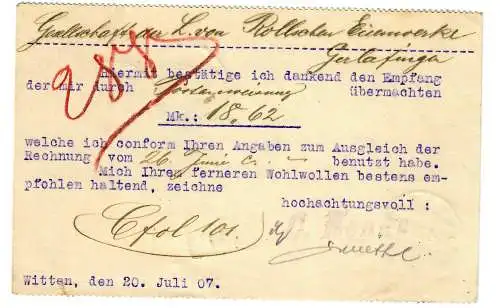 Gesellschaft der L. von Rollschen Eisenwerke
Gerlafingen
hiermit bestätige ich dankend den Empfang
der mir durch Postanweisung übermachten
Mk.: 18.62
welche ich conform Ihren Angaben zum Ausgleich der
Rechnung vom 26. Juni c. benutzt habe.
Mich Ihren ferneren Wohlwollen bestens em-
pfohlen haltend, zeichne
hochachtungsvoll :
Cfol 101.
Witten, den 20. Juli 07.